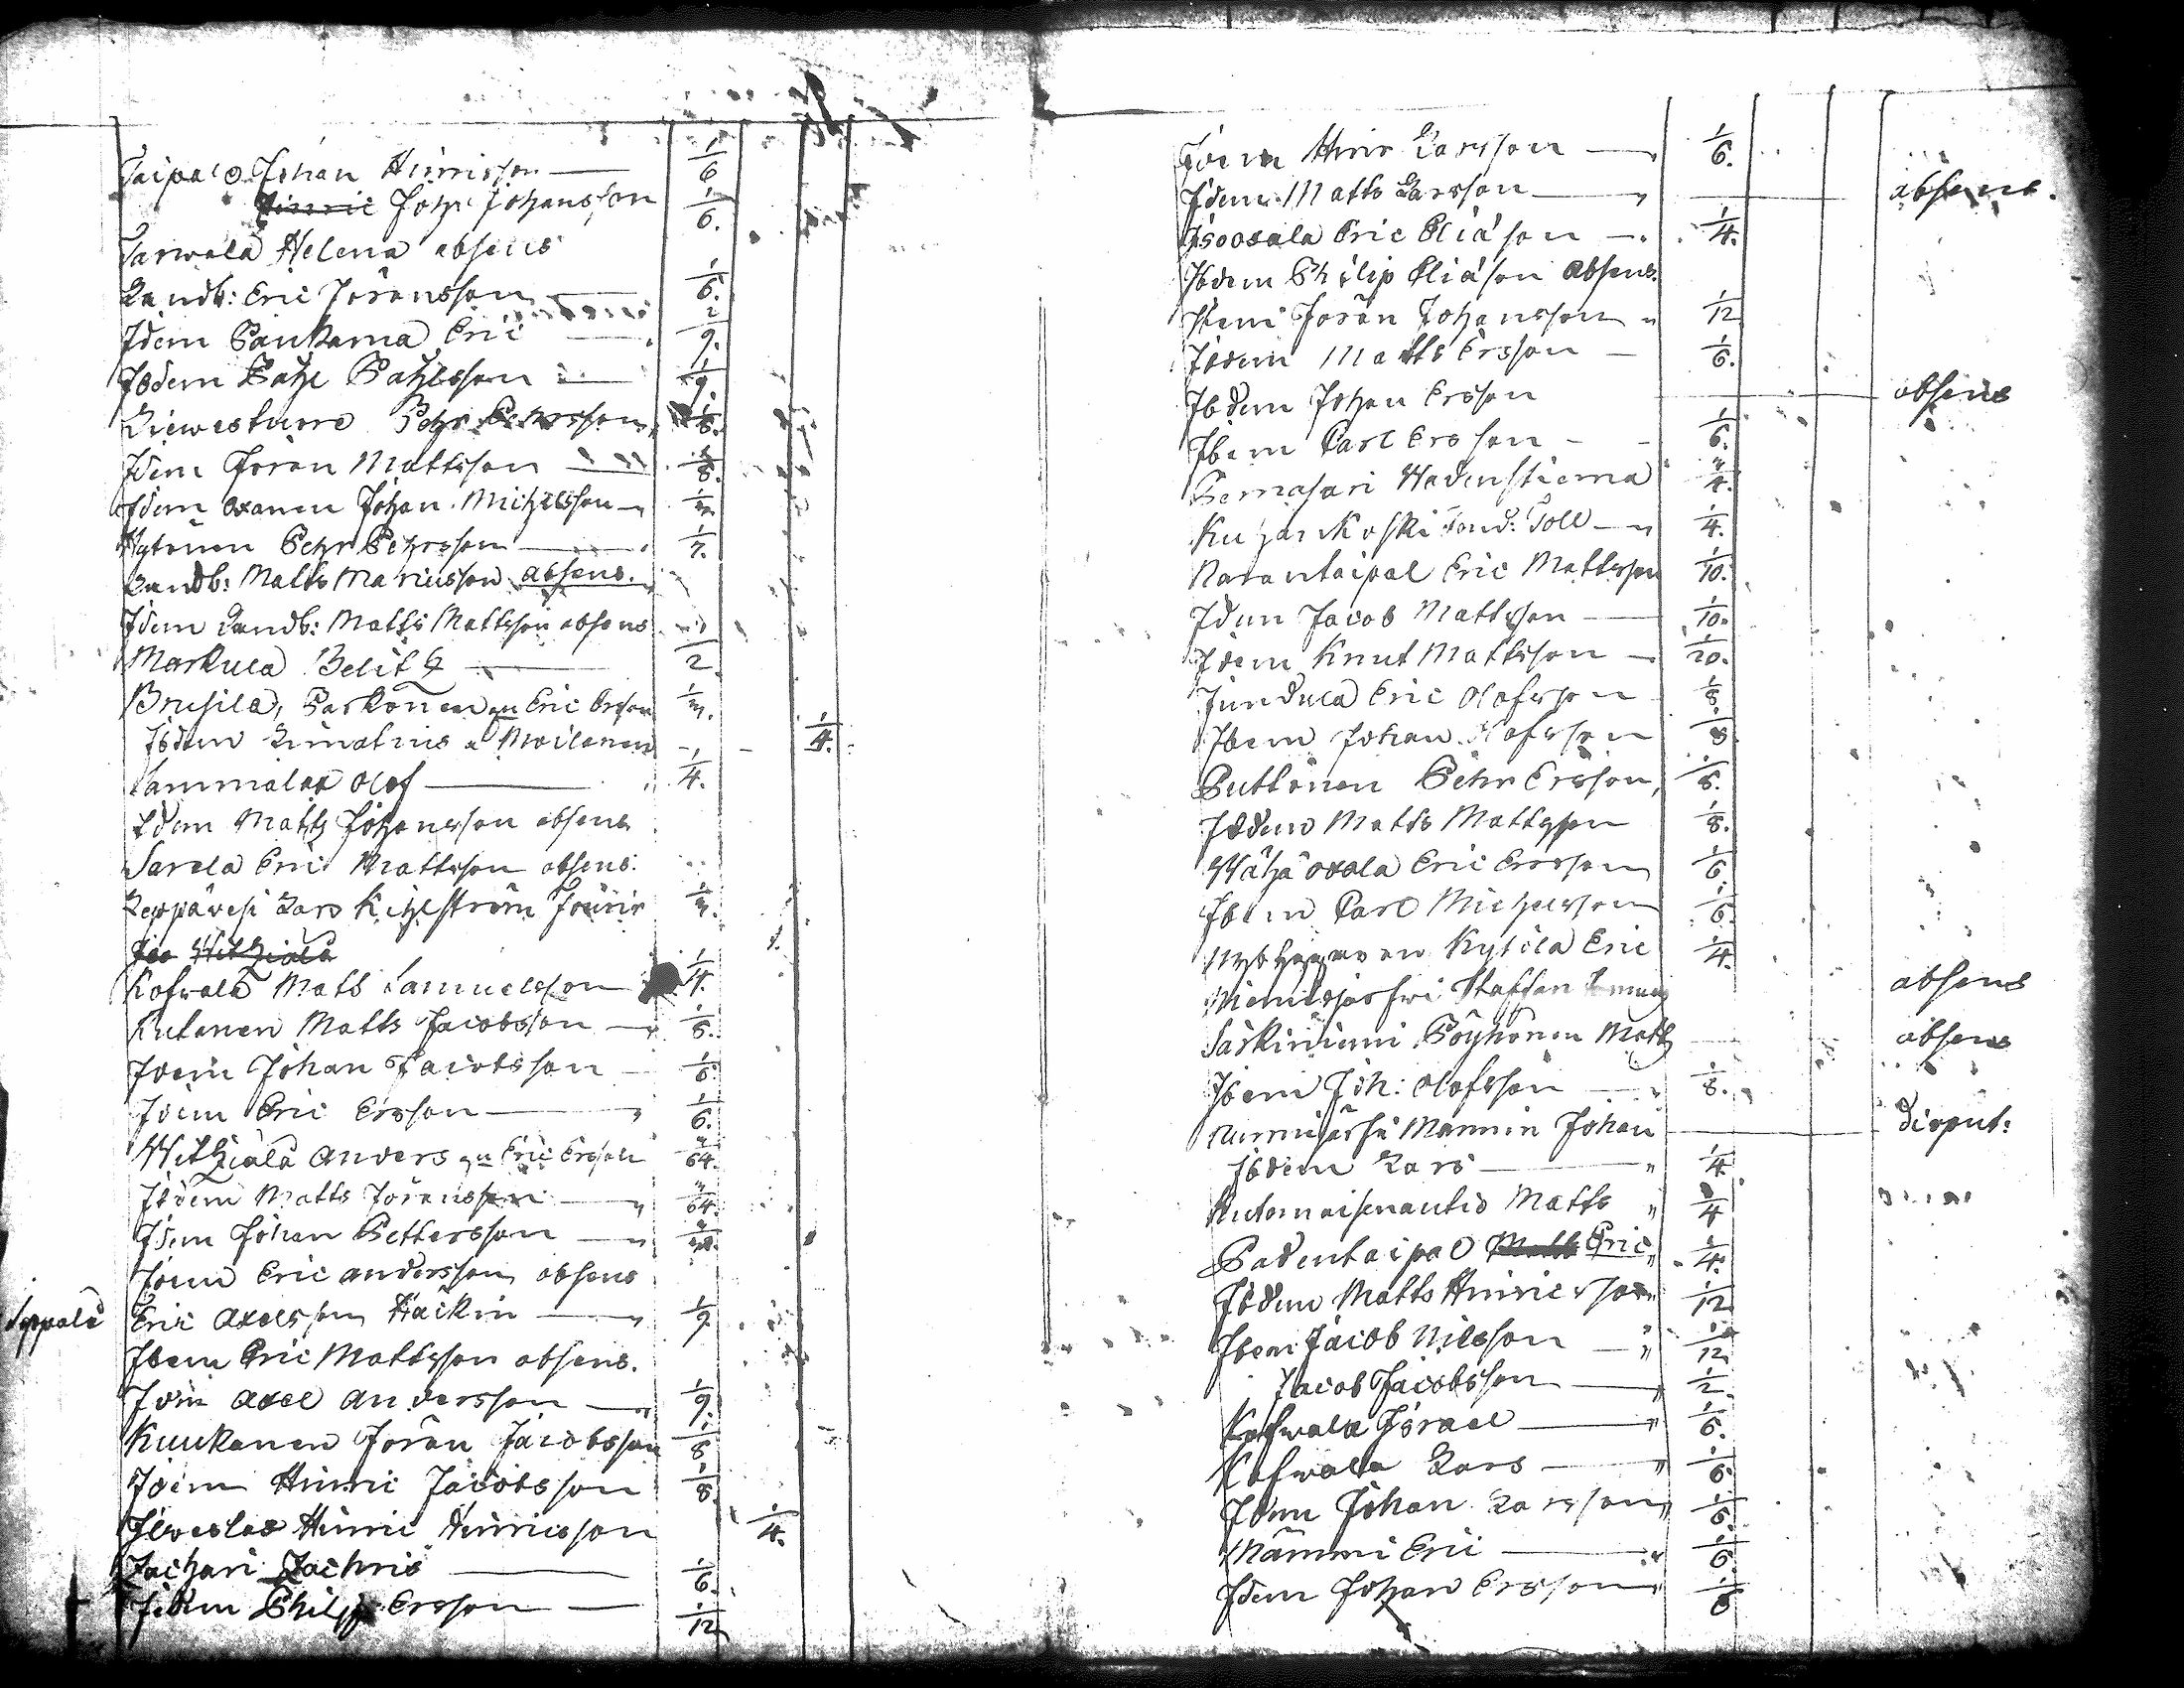 Taipale Johan Hinricsson — 1/6
Hinric Johan Johansson 1/6.
Sarwala Helena absens
Landb: Eric Jöransson — 1/6.
Idem Paukama Eric — 2/9.
Ibdem Påhl Påhlsson — 1/9.
Liewestuore Pehr Pehrsson 1/8.
Idem Jöran Mattsson — 1/8.
Idem Oxanen Johan Michelsson
Hytönen Pehr Pehrsson — 1/7.
Landb: Matts Maricusson absens.
Idem Landb: Matts Mattsson absens
Markula Belitz — 1/2
Brusila, Parkonen Eric Ersson
Ibdem Moilanen 1/4.
Sammalax Olof — 1/4.
Idem Matts Johansson absens
Sarela Eric Mattsson absens.
Leppävesi Lars Kihlström
Wihtiälä
Kofwala Mats Samuelsson 1/4.
Kutanen Matts Jacobsson — 1/8.
Idem Johan Jacobsson — 1/8
Idem Eric Ersson — 1/6.
Wihtiälä Anders Eric Ersson 64.
Ibdem Matts Jöransson — 64.
Idem Johan Pettersson —
Idem Eric Andersson absens
Seppälä Eric Axelsson Häckin — 1/9
Ibdem Eric Mattsson absens.
Idem Axel Andersson — 1/9.
Kuukanen Jöran Jacobsson 1/8
Idem Hinric Jacobsson 1/8.
Ilweslax Hinric Hinricsson 1/4.
Zachari Zachris — 1/6.
Idem Philip Ersson — 1/12
Idem Hinr Larsson — 1/6.
Idem Matts Larsson — absens.
Isoosala Eric Eliäson — 1/4.
Ibdem Philip Eliäson Absens.
Ibem Jöran Johansson 1/12
Ibdem Matts Ersson — 1/6.
Ibdem Johan Ersson — absens
Ibem Carl Ersson - 1/6.
Pernasari Hedenstierna 4.
Kuhankoski Toll — 1/4.
Narantaipal Eric Mattsson 1/10.
Idem Jacob Mattsson — 1/10.
Idem Knut Mattsson — 1/20.
Jundula Eric Olofsson 1/8
Ibem Johan Olofsson 1/8
Puttonen Pehr Ersson, 1/8.
Ibdem Matts Mattsson 1/8.
Wähä oxala Eric Ersson 1/6
Ibem Carl Michelsson 1/6.
Kylölä Eric 1/4.
Niemisjärfwi Staffan absens
Särkiniemi Pöyhönen Matts absens
Ibem Joh: Olofsson — 1/8.
Mannin Johan — disput:
Ibdem Lars — 1/4.
Matts 1/4
Padentaipal Matts Eric 1/4.
Ibdem Matts Hinricsson 1/12
Ibem Jacob Nilsson — 1/12
Jacob Jacobsson — 1/2
Kofwala Israel — 1/6.
Kofwala Lars — 1/6.
Idem Johan Larsson 1/6.
Mämmi Eric — 1/6
Idem Johan Ersson 1/6